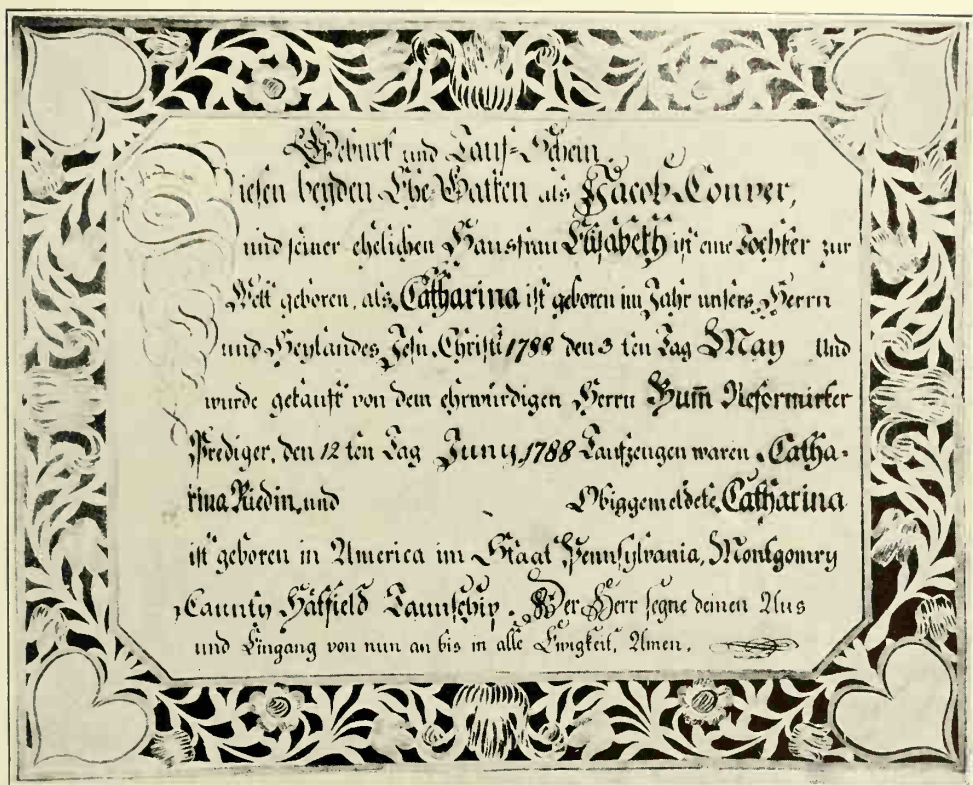 Geburt und Tauf=Schein.
Diesen beyden Ehe-Gatten als Jacob Conver,
und seiner ehelichen Hausfrau Elisabeth ist eine Tochter zur
Welt geboren, als Catharina ist geboren im Jahr unsers Herrn
und Heylandes Jesu Christi 1788 den 3 ten Tag May Und
wurde getauft von dem ehrwürdigen Herrn Reformirter
Prediger, den 12 ten Tag Juny, 1788 Taufzeugen waren Catha-
rina Riedin, und Obiggemeldete Catharina
ist geboren in America im Staat Pennsylvania, Montgomry
Caunty Hatfield Taunschip. Der Herr segne deinen Aus
und Eingang von nun an bis in alle Ewigkeit, Amen.